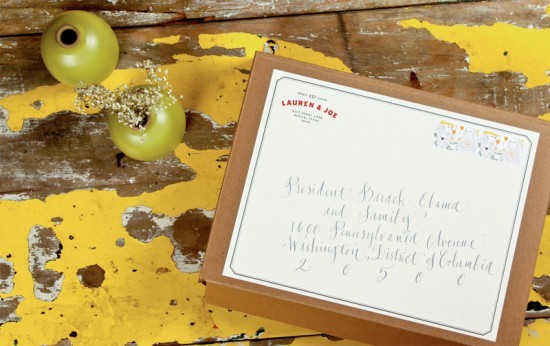 LAUREN & JOE
AUSTIN, TEXAS
President Barack Obama
and family,
1600 Pennsylvania Avenue
Washington, District of Columbia
20500